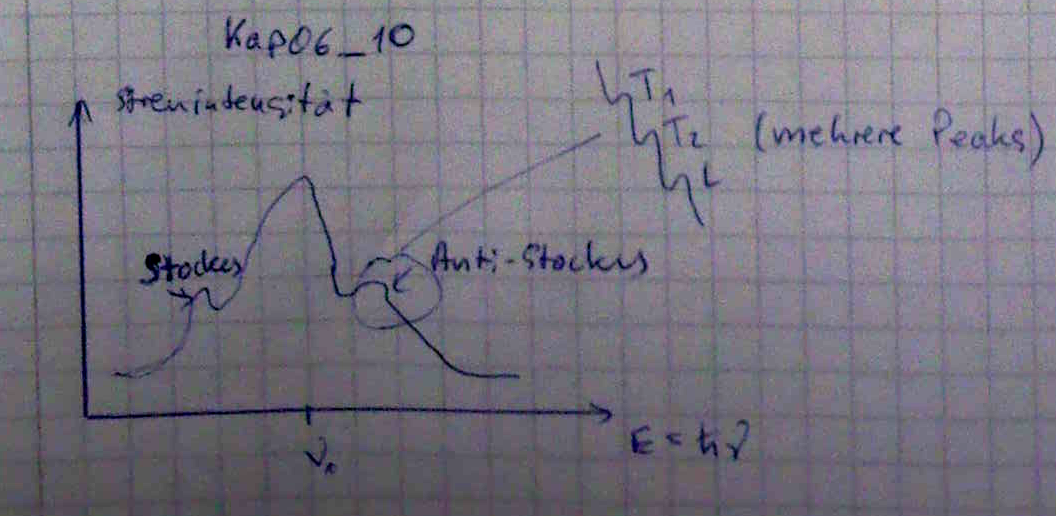 Kap06_10
Streuintensität
T₁
T₂ (mehrere Peaks)
L
Stockes
Anti-Stockes
ν₀
E = ħν